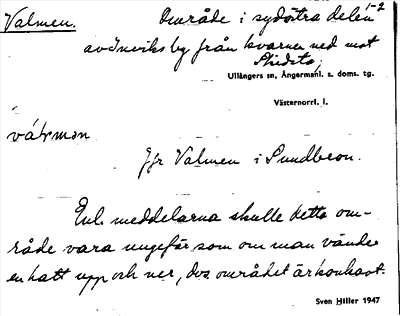 Valmen. Område i sydöstra delen 1-2
av Önviks by från kvarnen ned mot
Ullångers sn, Ångermanl. s. doms. tg.
Västernorrl. l.
Jfr Valmen i Sundbron.
Enl. meddelarna skulle detta om-
råde vara ungefär som om man vände
en hatt upp och ner, dvs området är konkavt.
Sven Hiller 1947